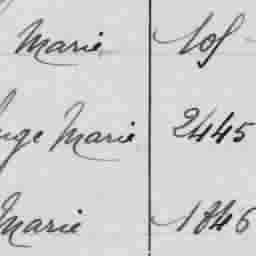 Marie 105
Marie 2445
Marie 1846